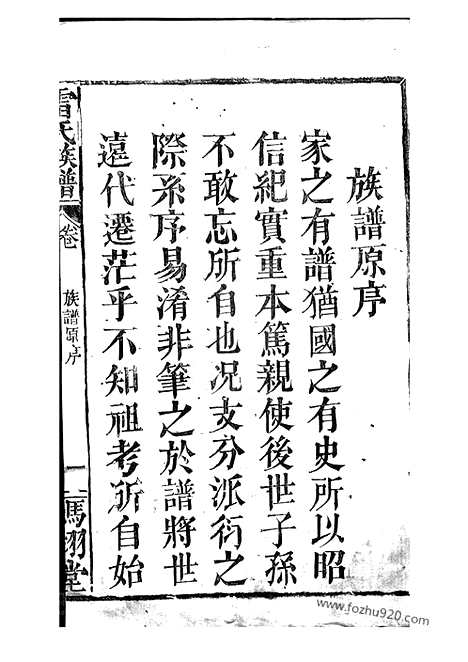 族譜原序
家之有譜猶國之有史所以昭
信紀實重本篤親使後世子孫
不敢忘所自也况支分派衍之
際系序易淆非筆之於譜將世
遠代遷茫乎不知祖考所自始
雷氏族譜
卷一
族譜原序
一
馮翊堂
www.fozhu920.com